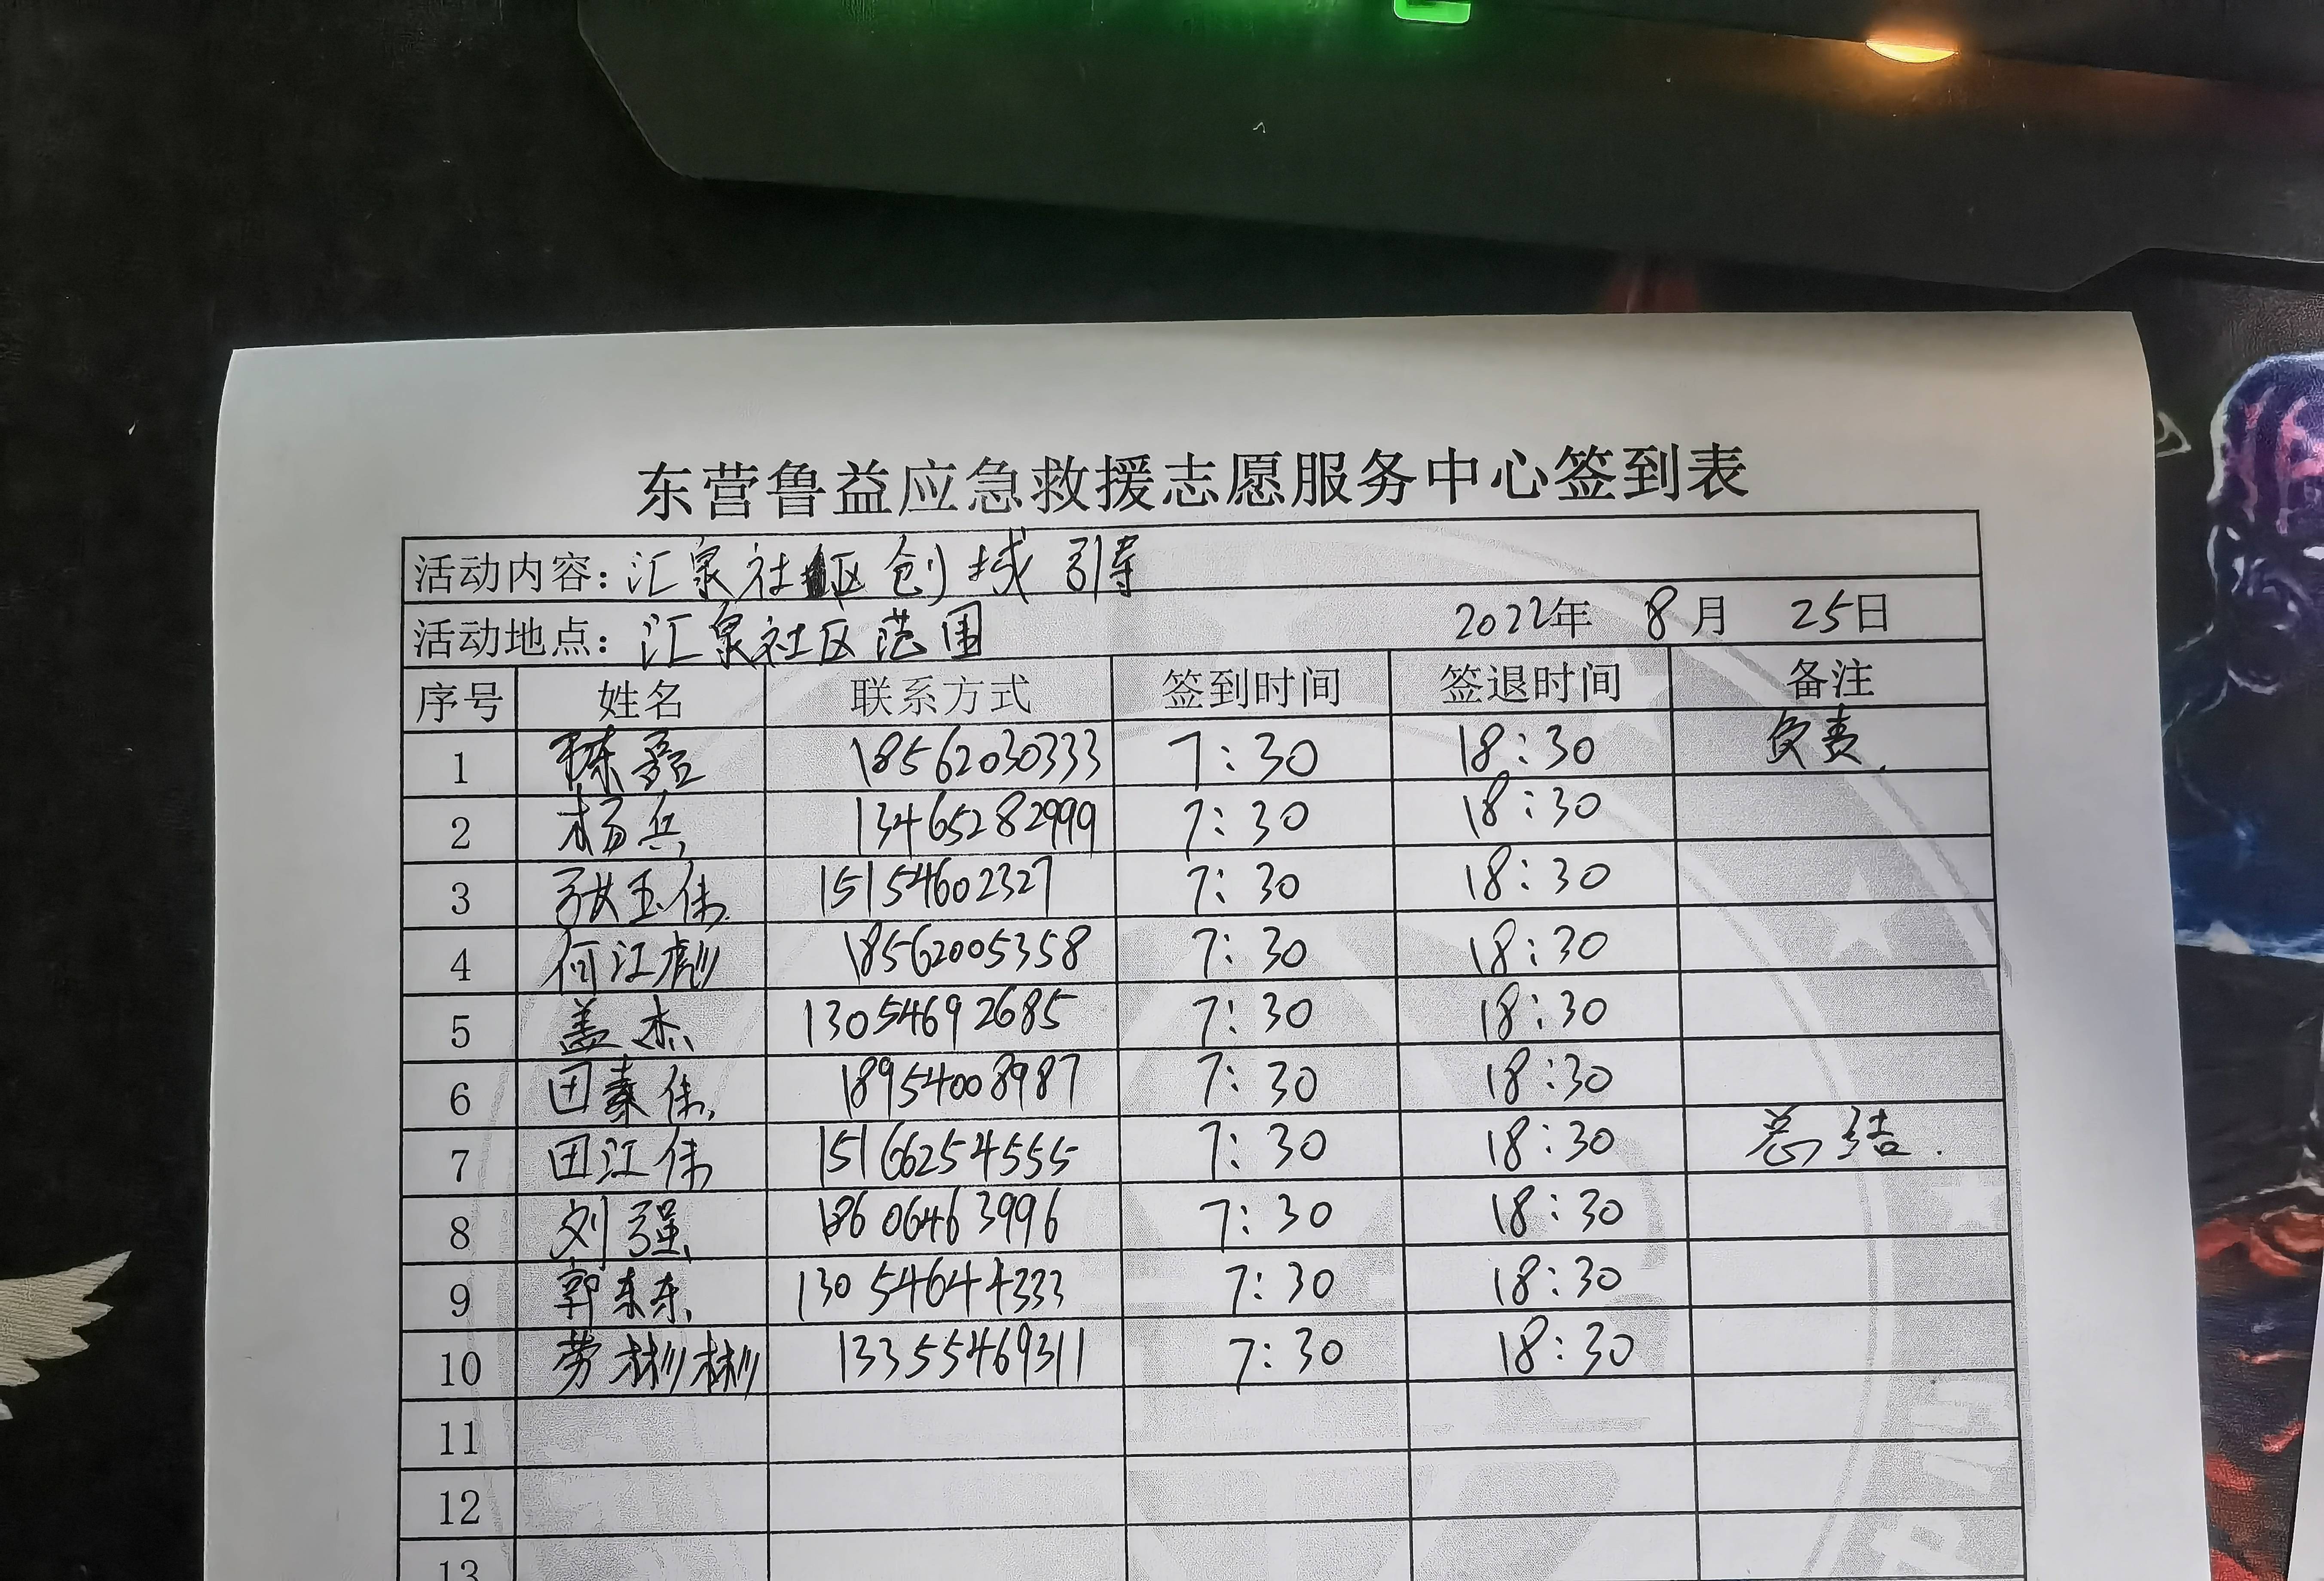 东营鲁益应急救援志愿服务中心签到表
活动内容：汇泉社区创城引导
活动地点：汇泉社区范围 2022年 8月 25日
序号 姓名 联系方式 签到时间 签退时间 备注
1 18562030333 7:30 18:30 负责.
2 杨兵 13465282999 7:30 18:30
3 张玉伟 15154602327 7:30 18:30
4 何江彪 18562005358 7:30 18:30
5 盖杰 13054692685 7:30 18:30
6 田素伟 18954008987 7:30 18:30
7 田江伟 15166254555 7:30 18:30 总结.
8 刘强 18606463996 7:30 18:30
9 郭东东 13054644333 7:30 18:30
10 劳彬彬 13355469311 7:30 18:30
11
12
13